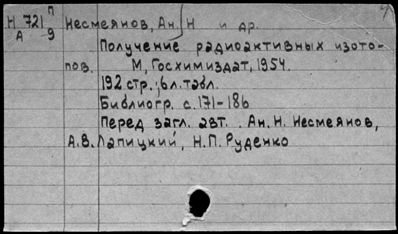 Н 721 П
А 9
Несмеянов, Ан. Н и др.
Получение радиоактивных изото-
пов. М, Госхимиздат, 1954.
192 стр.; 6л. табл.
Библиогр. с. 171-186
Перед загл. авт. Ан. Н. Несмеянов,
А.В. Лапицкий, Н.П. Руденко